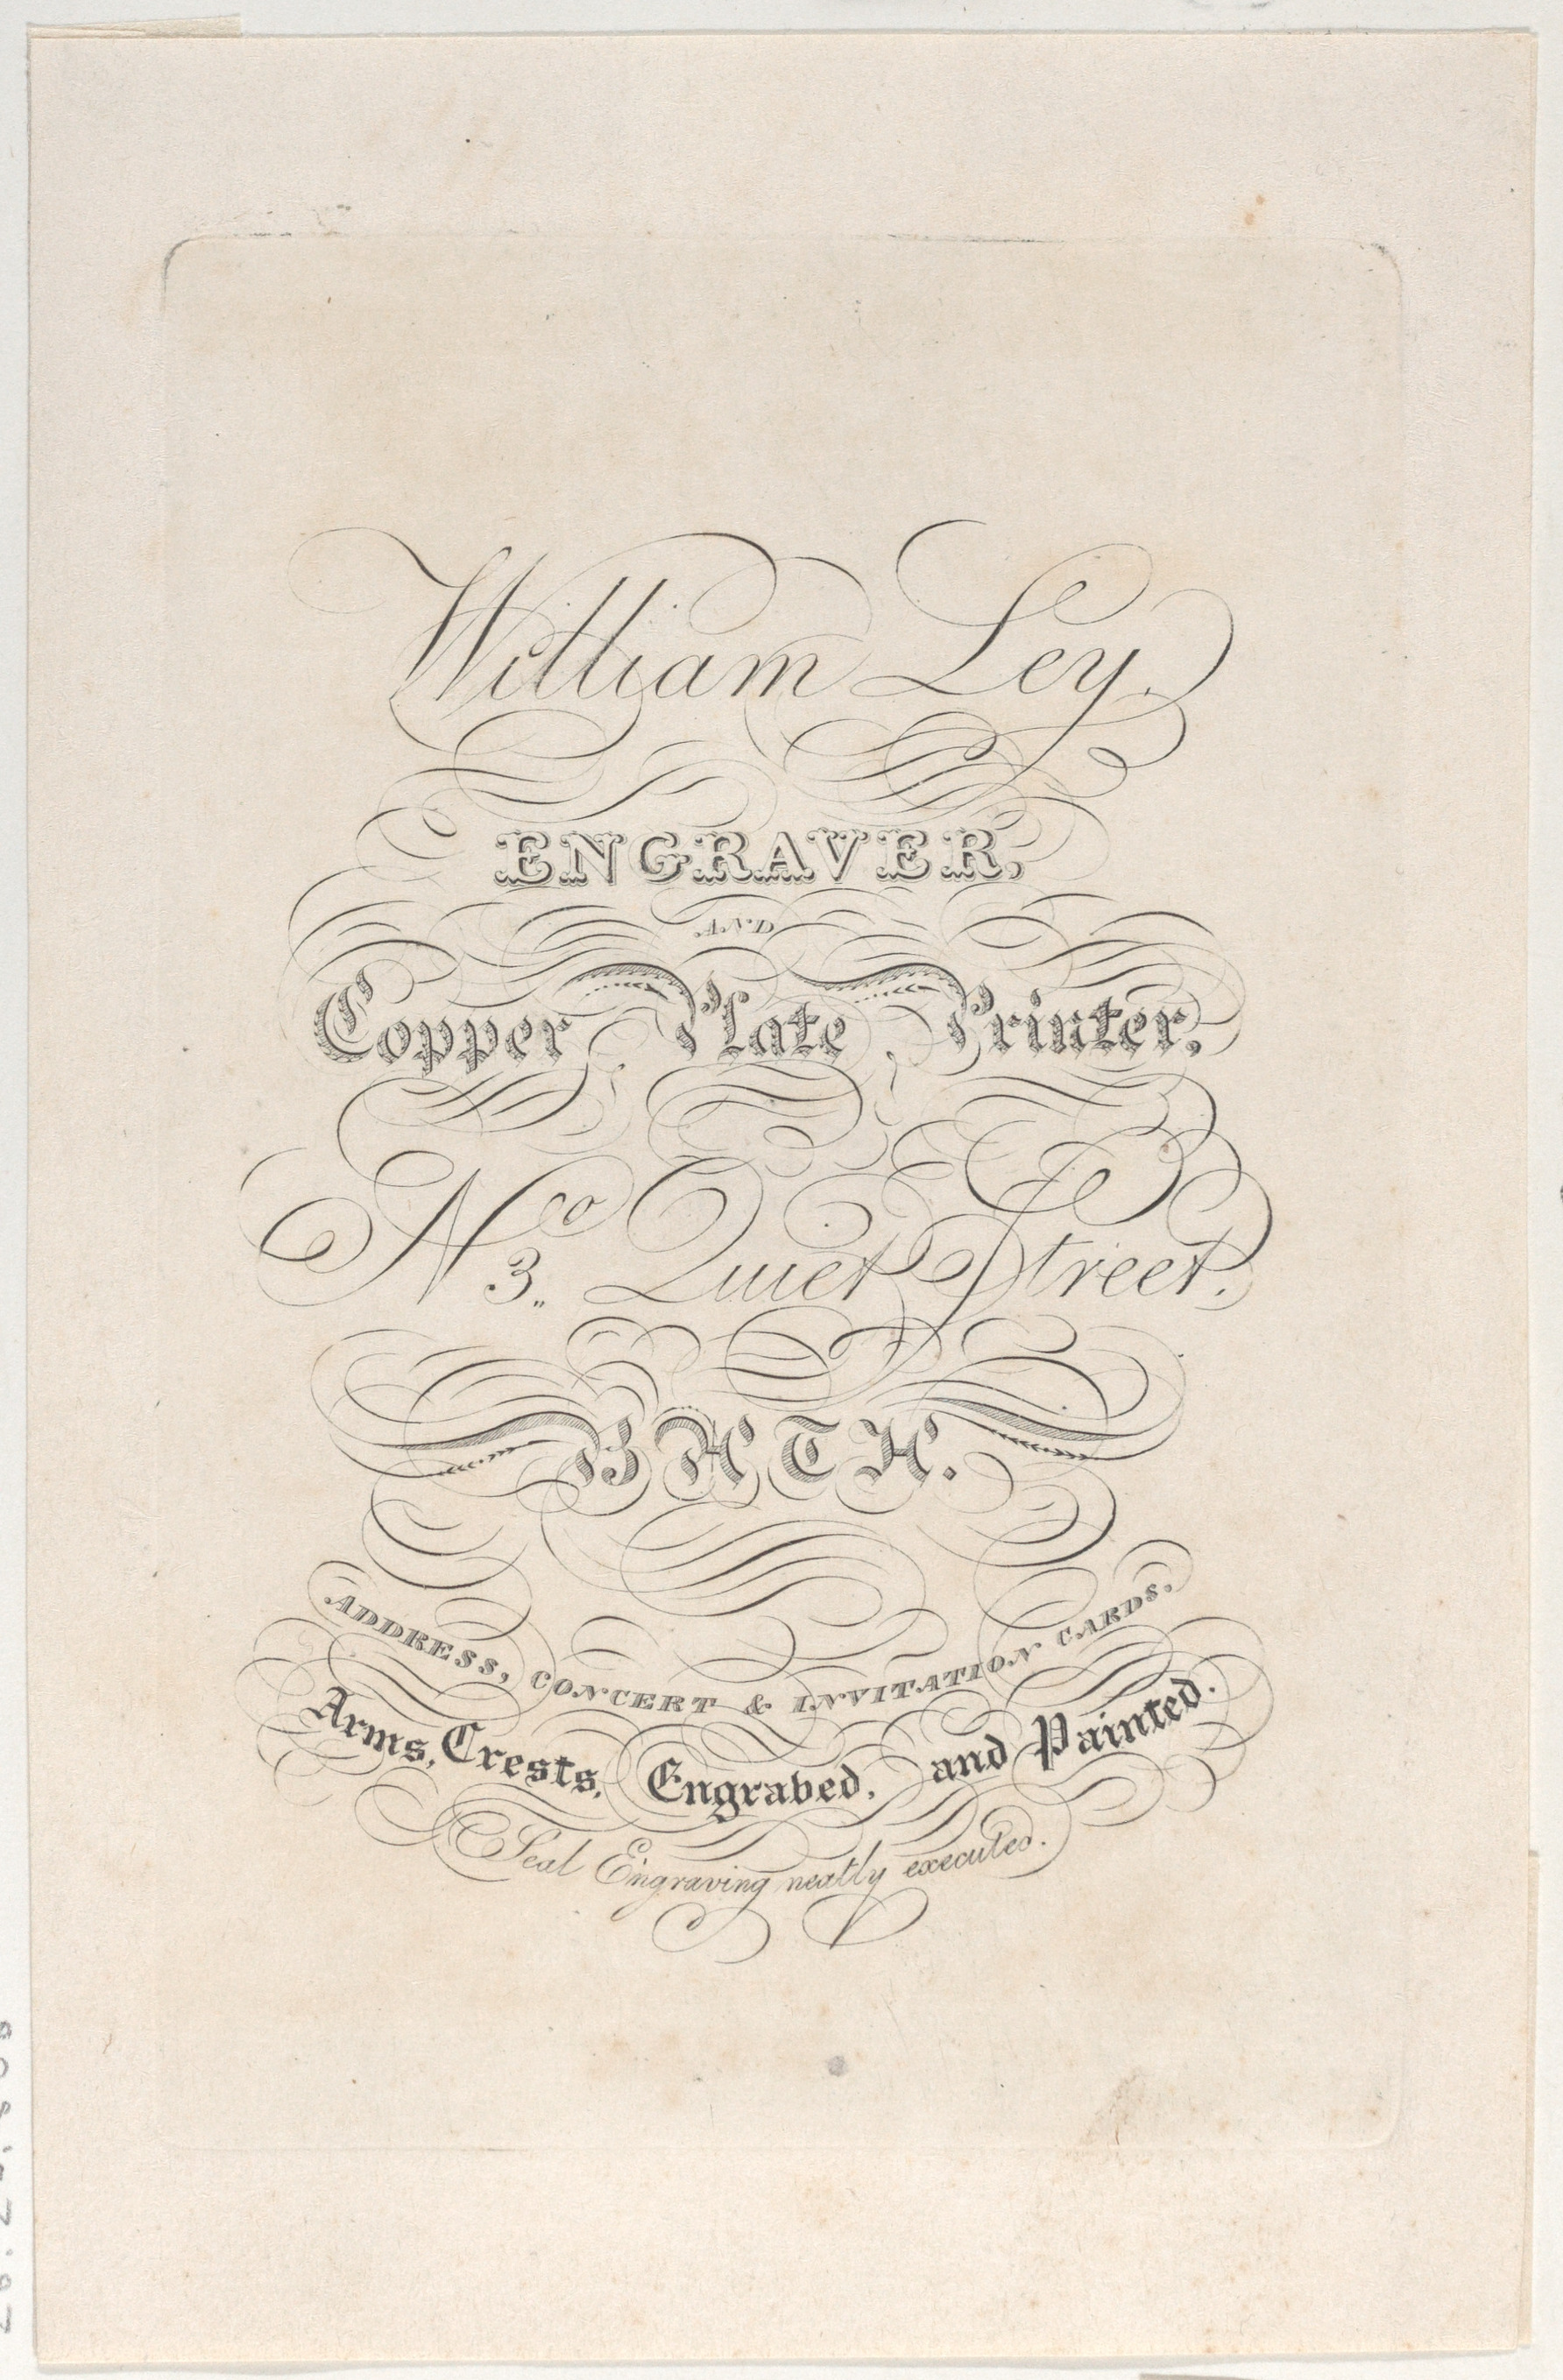 William Ley.
ENGRAVER,
AND
Copper Plate Printer,
No 3,, Quiet Street.
BATH.
ADDRESS, CONCERT & INVITATION CARDS.
Arms, Crests, Engraved, and Painted.
Seal Engraving neatly executed.